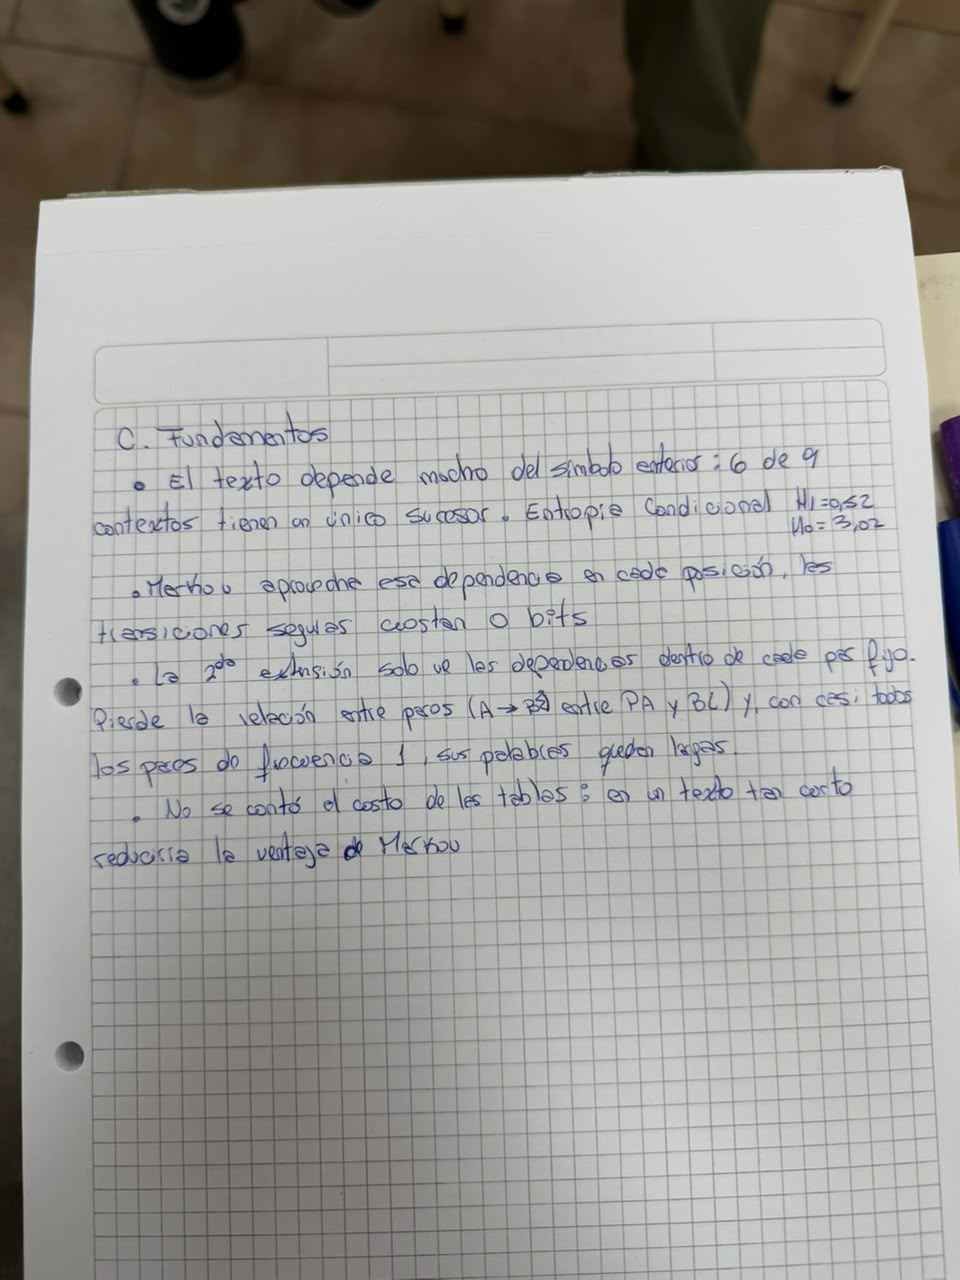 C. Fundamentos
• El texto depende mucho del símbolo anterior: 6 de 9
contextos tienen un único sucesor. Entropia Condicional H1=0,52
H0=3,02
• Markov aprovecha esa dependencia en cada posición, las
transiciones seguras cuestan 0 bits
• La 2da extensión solo ve las dependencias dentro de cada par fijo.
Pierde la relación entre pares (A→B entre PA y BL) y, con casi todos
los pares de frecuencia 1, sus palabras quedan largas.
• No se contó el costo de las tablas: en un texto tan corto
reduciria la ventaja de Markov